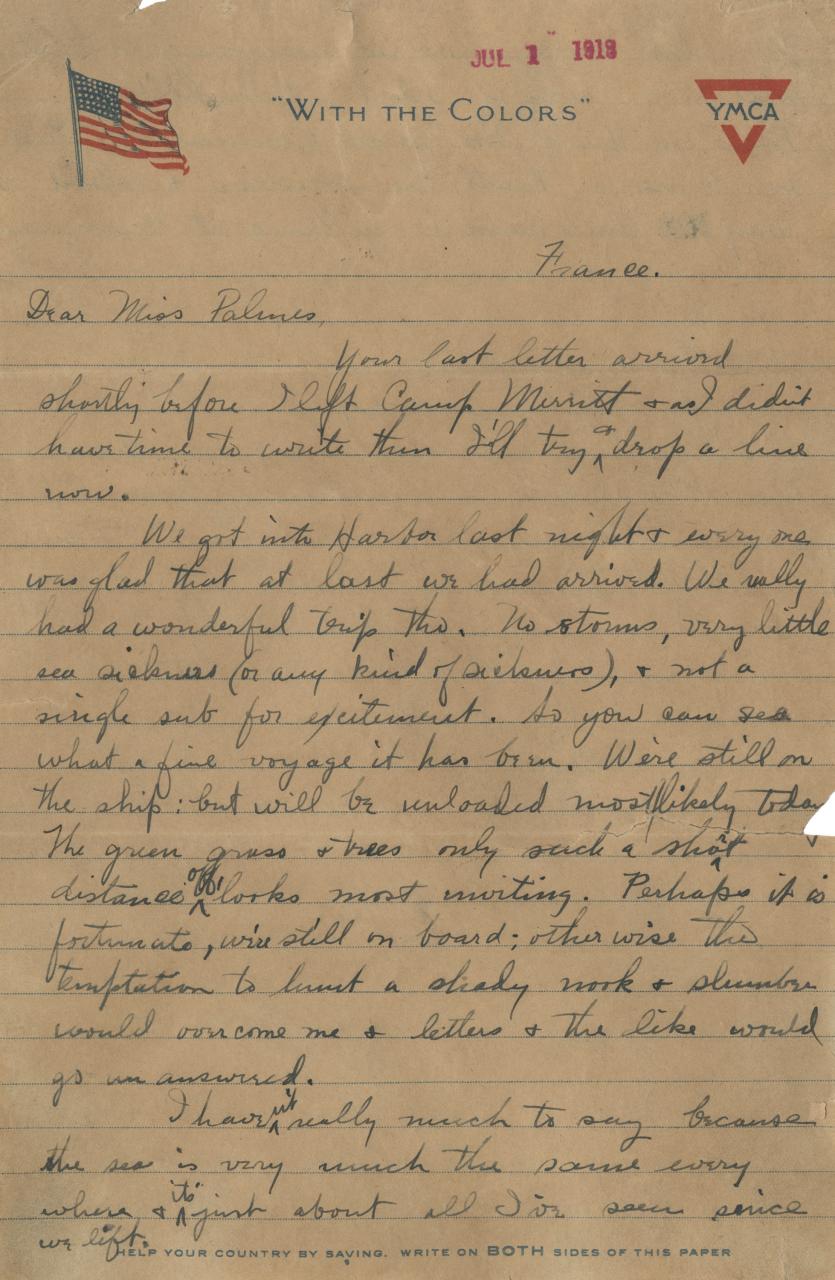 JUL 1 1918
"WITH THE COLORS"
YMCA
France.
Dear Miss Palmes,
Your last letter arrived
shortly before I left Camp Merritt & as I didn't
have time to write then I'll try & drop a line
now.
We got into Harbor last night & every one
was glad that at last we had arrived. We really
had a wonderful trip tho. No storms, very little
sea sickness (or any kind of sickness), & not a
single sub for excitement. So you can see
what a fine voyage it has been. We're still on
the ship: but will be unloaded most likely today
The green grass & trees only such a short
distance off looks most inviting. Perhaps it is
fortunate, we're still on board; otherwise the
temptation to hunt a shady nook & slumber
would overcome me & letters & the like would
go unanswered.
I haven't really much to say because
the sea is very much the same every
where & it's just about all I've seen since
we left.
HELP YOUR COUNTRY BY SAVING. WRITE ON BOTH SIDES OF THIS PAPER